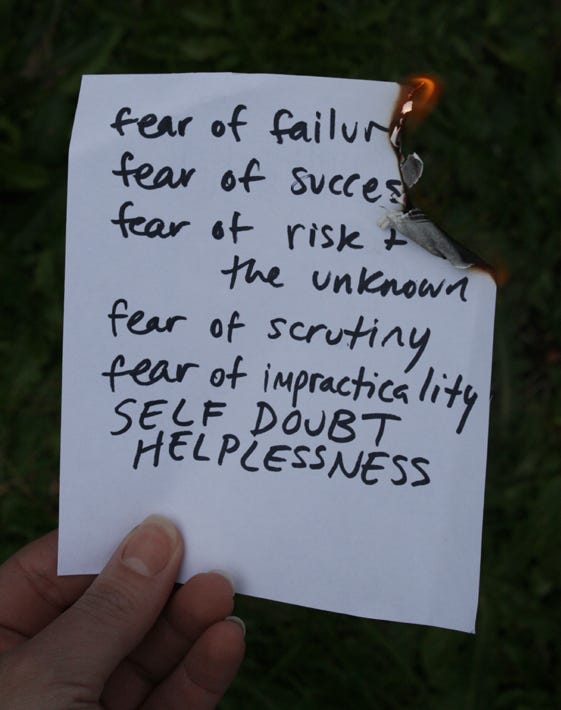 fear of failur
fear of succes
fear of risk +
the unknown
fear of scrutiny
fear of impracticality
SELF DOUBT
HELPLESSNESS